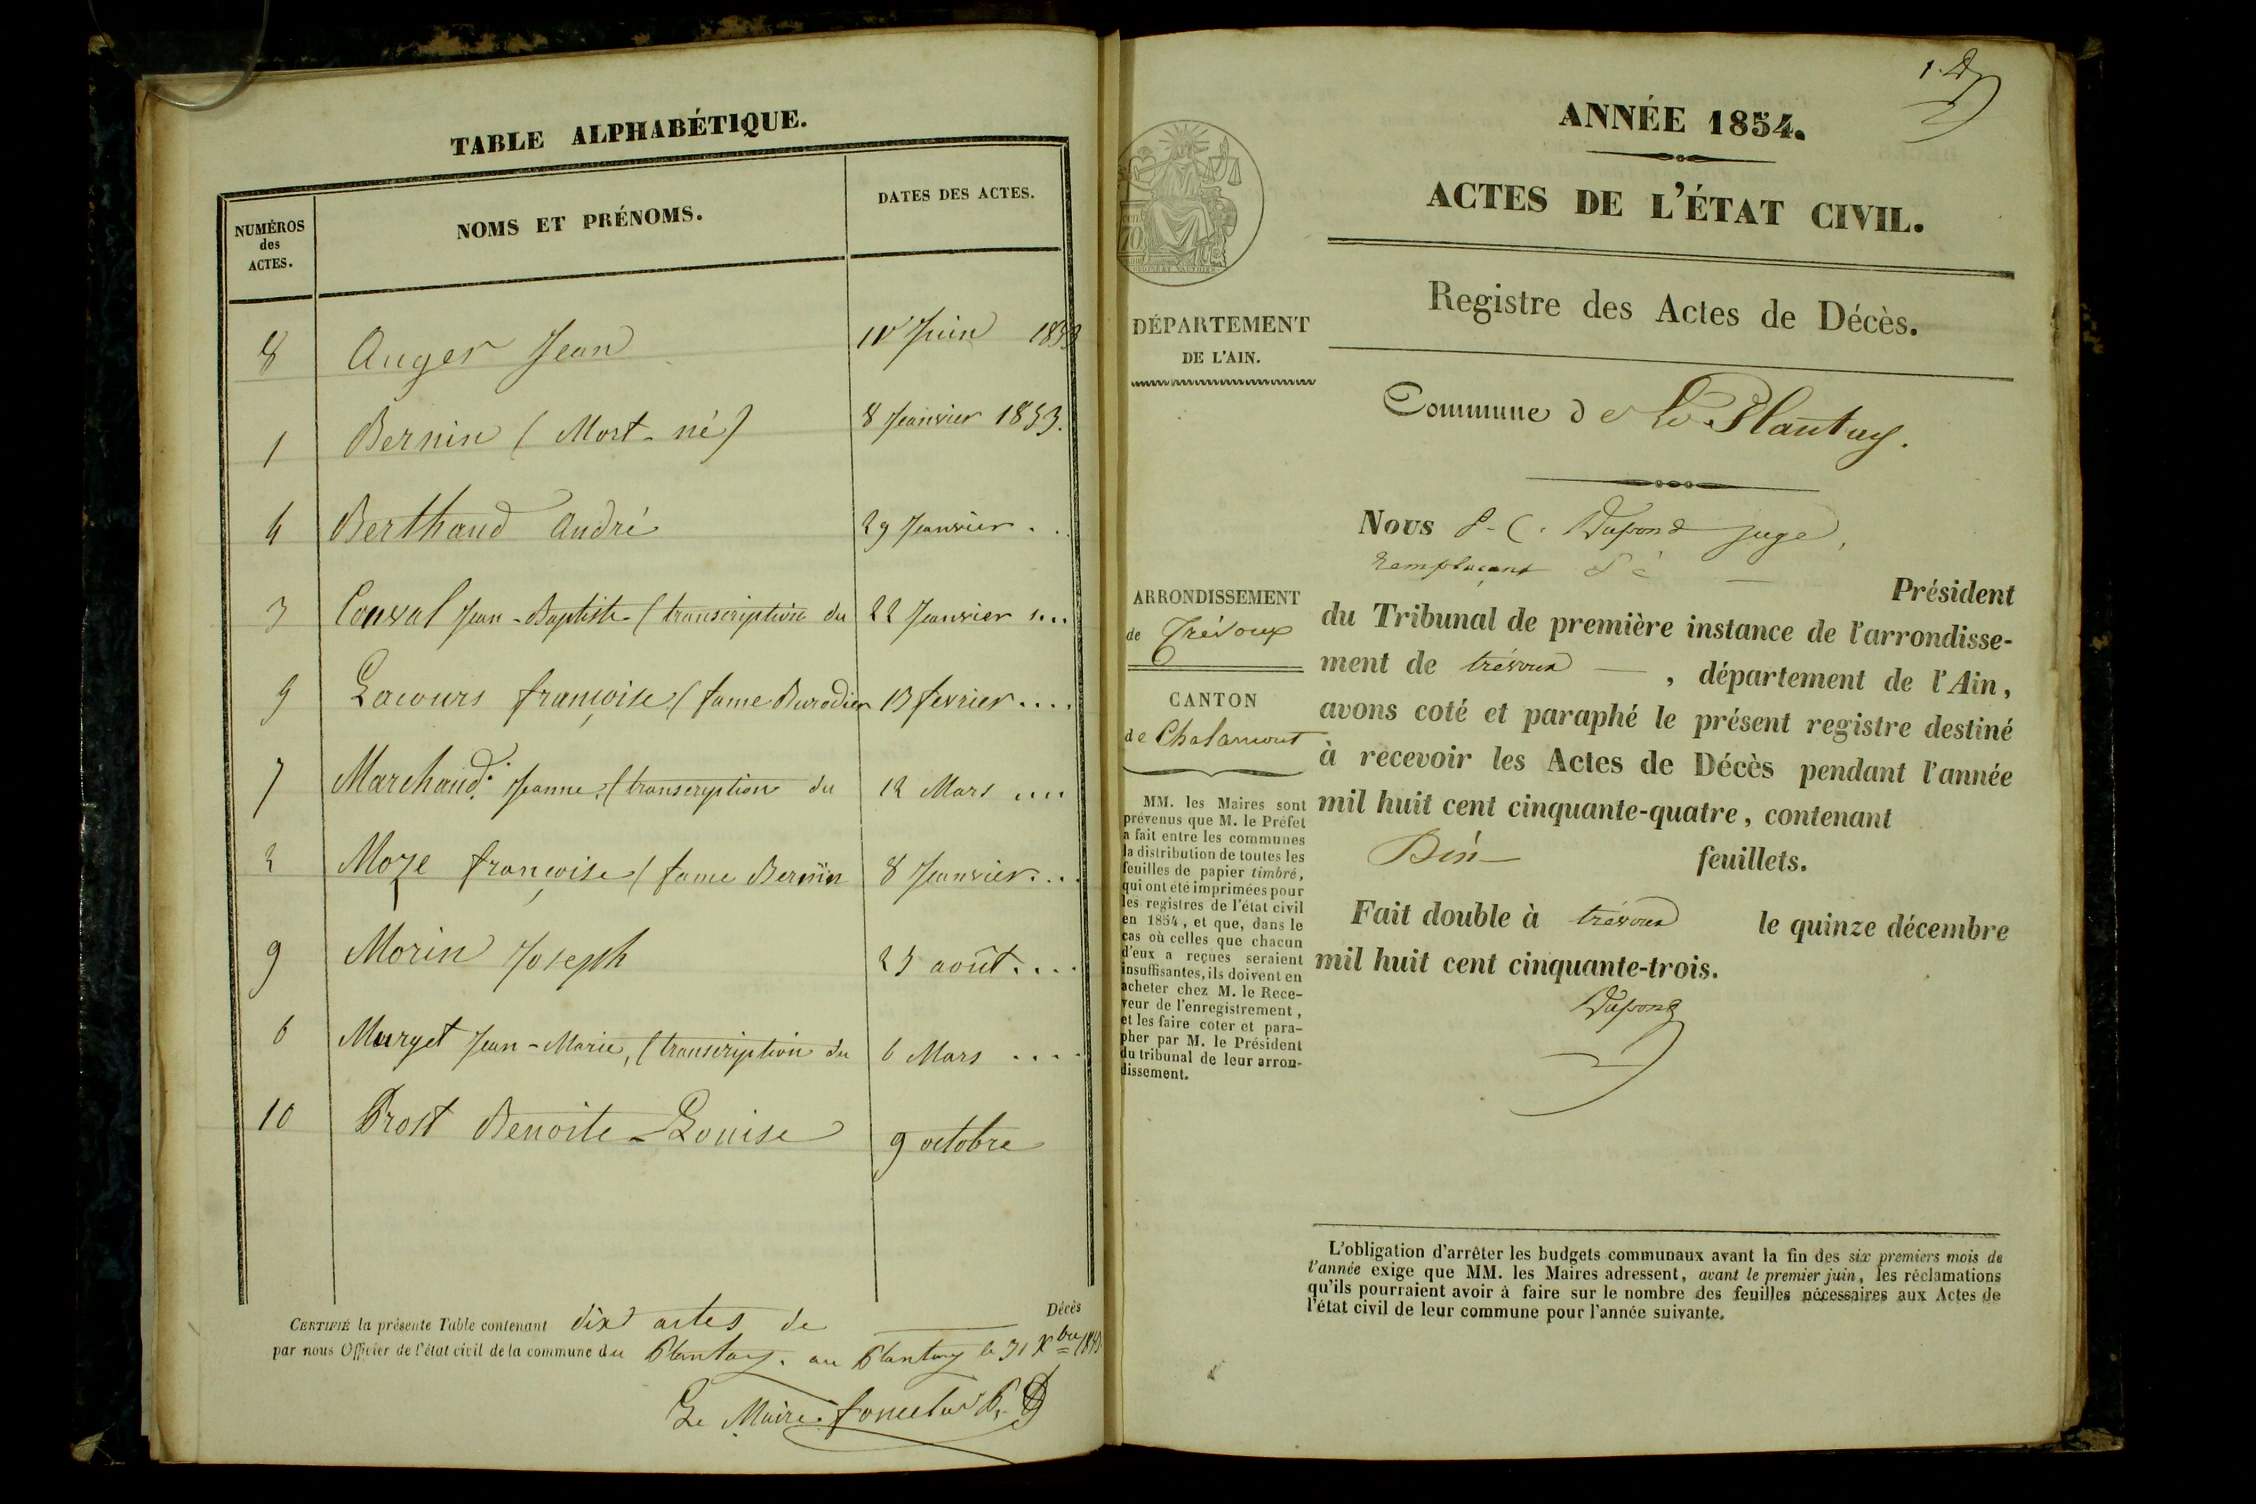 TABLE ALPHABÉTIQUE.
NUMÉROS des ACTES. NOMS ET PRÉNOMS. DATES DES ACTES.
8 Auger Jean Juin 1853
1 Bernin (Mort-né) 8 Janvier 1853.
4 Berthaud André 29 Janvier . .
3 Conval Jean-Baptiste (transcription du 22 Janvier ...
5 Lacours françoise (fame Burodier 13 fevrier ....
7 Marchand Jeanne, (transcryption du 12 Mars ....
2 Moze françoise (fame Bernin 8 Janvier ...
9 Morin Joseph 25 août ....
6 Murget Jean-Marie, (transcription du 6 Mars ....
10 Prost Benoite-Louise 9 octobre
CERTIFIÉ la présente Table contenant dix actes de Décès
par nous Officier de l'état civil de la commune du Plantay. au Plantay le 31 Xbre 1853
Le Maire
ANNÉE 1854.
ACTES DE L'ÉTAT CIVIL.
Registre des Actes de Décès.
Commune de Le Plantay.
DÉPARTEMENT
DE L'AIN.
ARRONDISSEMENT
de Trévoux
CANTON
de Chalamont
MM. les Maires sont
prévenus que M. le Préfet
a fait entre les communes
la distribution de toutes les
feuilles de papier timbré,
qui ont été imprimées pour
les registres de l'état civil
en 1854, et que, dans le
cas où celles que chacun
d'eux a reçues seraient
insuffisantes, ils doivent en
acheter chez M. le Rece-
veur de l'enregistrement,
et les faire coter et para-
pher par M. le Président
du tribunal de leur arron-
dissement.
Nous Dupond juge,
remplaçant Président
du Tribunal de première instance de l'arrondisse-
ment de trévoux, département de l'Ain,
avons coté et paraphé le présent registre destiné
à recevoir les Actes de Décès pendant l'année
mil huit cent cinquante-quatre, contenant
feuillets.
Fait double à trévoux le quinze décembre
mil huit cent cinquante-trois.
Dupond
L'obligation d'arrêter les budgets communaux avant la fin des six premiers mois de
l'année exige que MM. les Maires adressent, avant le premier juin, les réclamations
qu'ils pourraient avoir à faire sur le nombre des feuilles nécessaires aux Actes de
l'état civil de leur commune pour l'année suivante.